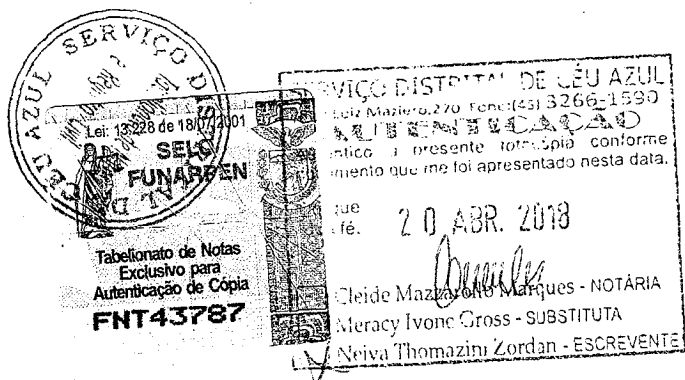 CÉU AZUL SERVIÇO DIS
Lei: 13.228 de 18/07/2001
SELO
FUNARPEN
Tabelionato de Notas
Exclusivo para
Autenticação de Cópia
FNT43787
VIÇO DISTRITAL DE CÉU AZUL
Luiz Maziero, 270 Fone:(45) 3266-1590
AUTENTICAÇÃO
a presente fotocópia conforme
mento que me foi apresentado nesta data.
que
fé.
20 ABR. 2018
Cleide Mazzarollo Marques - NOTÁRIA
Meracy Ivone Gross - SUBSTITUTA
Neiva Thomazini Zordan - ESCREVENTE